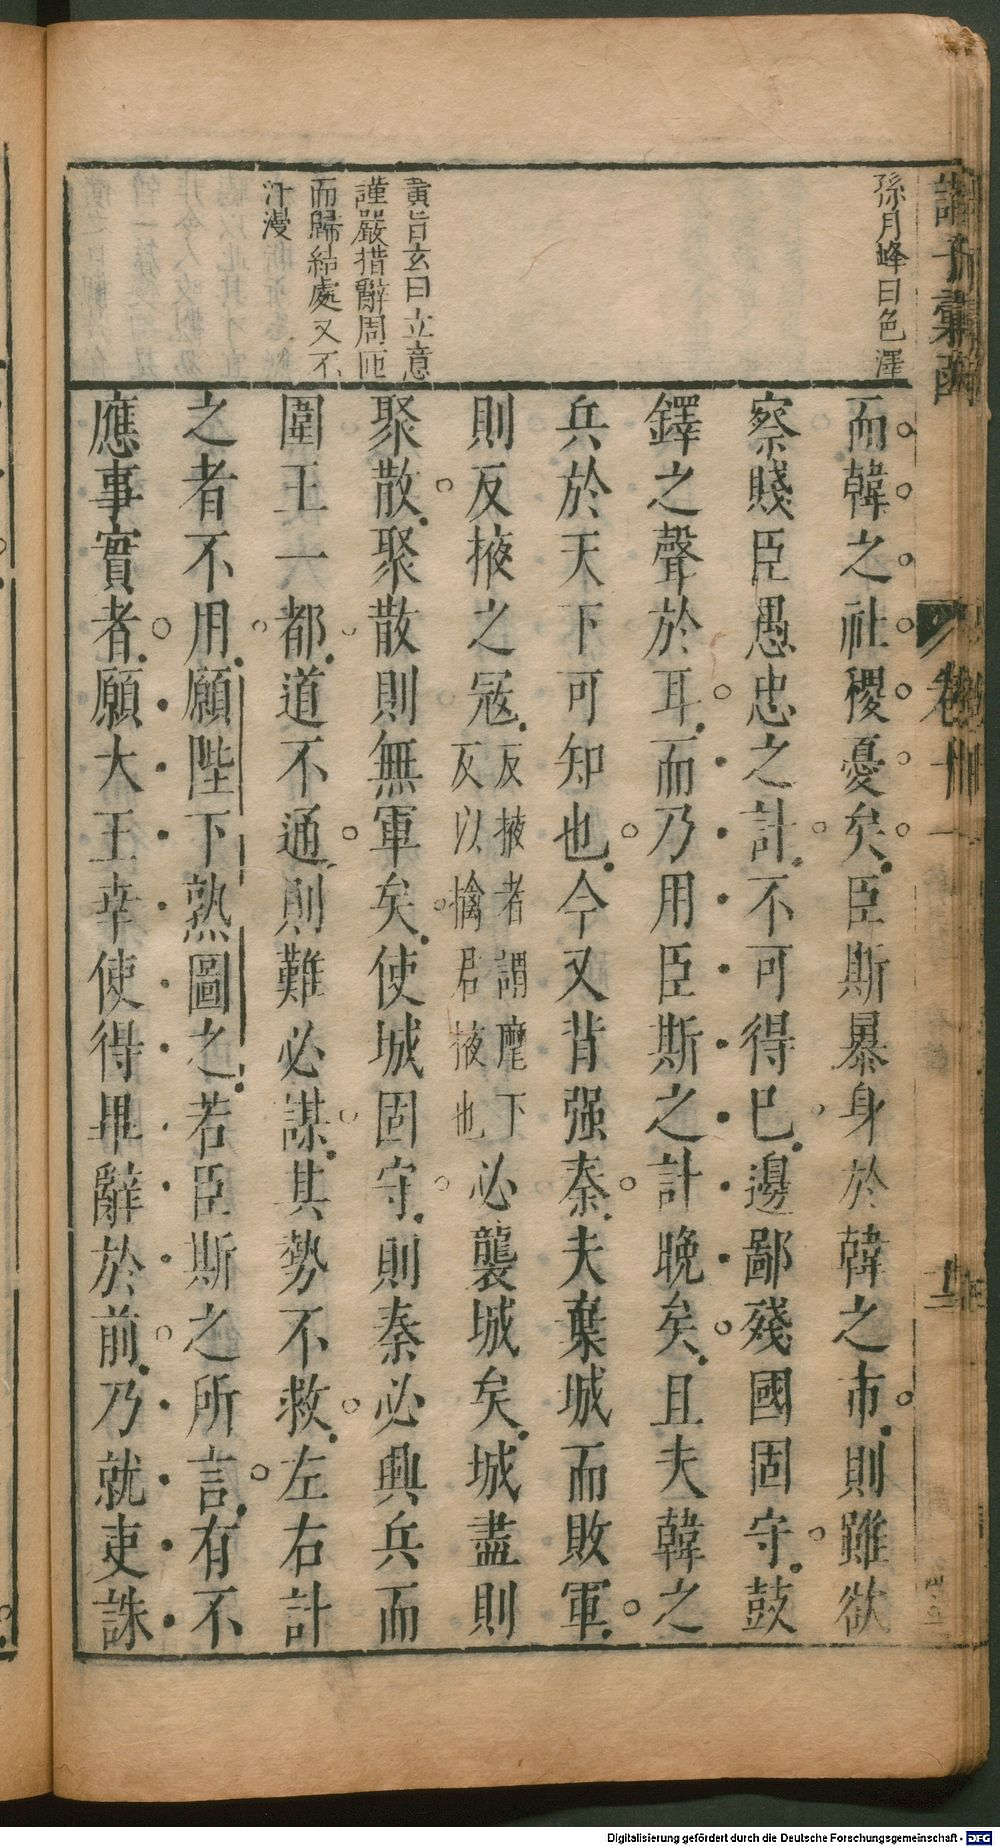 諸子彙函
卷卄一
十二
孫月峰曰色澤
而韓之社稷憂矣臣斯暴身於韓之市則雖欲
察賤臣愚忠之計不可得巳邊鄙殘國固守鼓
鐸之聲於耳而乃用臣斯之計晚矣且夫韓之
兵於天下可知也今又背强秦夫棄城而敗軍
則反掖之冦反掖者謂麾下
反以擒君掖也必襲城矣城盡則
聚散聚散則無軍矣使城固守則秦必興兵而
圍王一都道不通則難必謀其勢不救左右計
之者不用願陛下熟圖之若臣斯之所言有不
應事實者願大王幸使得畢辭於前乃就吏誅
黃旨玄曰立意
謹嚴措辭周匝
而歸結處又不
汗漫
Digitalisierung gefördert durch die Deutsche Forschungsgemeinschaft - DFG